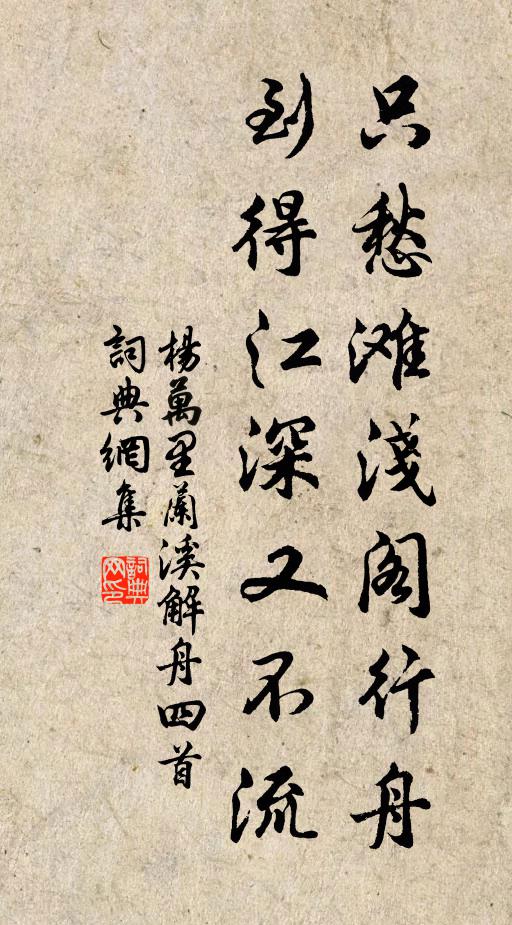 只愁滩淺阁行舟
到得江深又不流
楊萬里蘭溪解舟四首
詞典網集
詞典網印